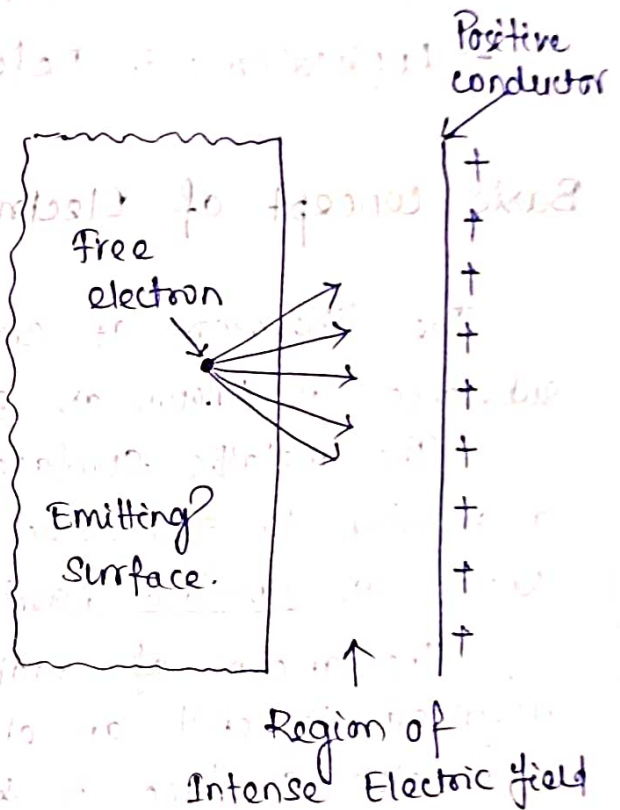 Positive
conductor
Free
electron
Emitting
Surface.
+
+
+
+
+
+
+
+
+
Region of
Intense Electric field